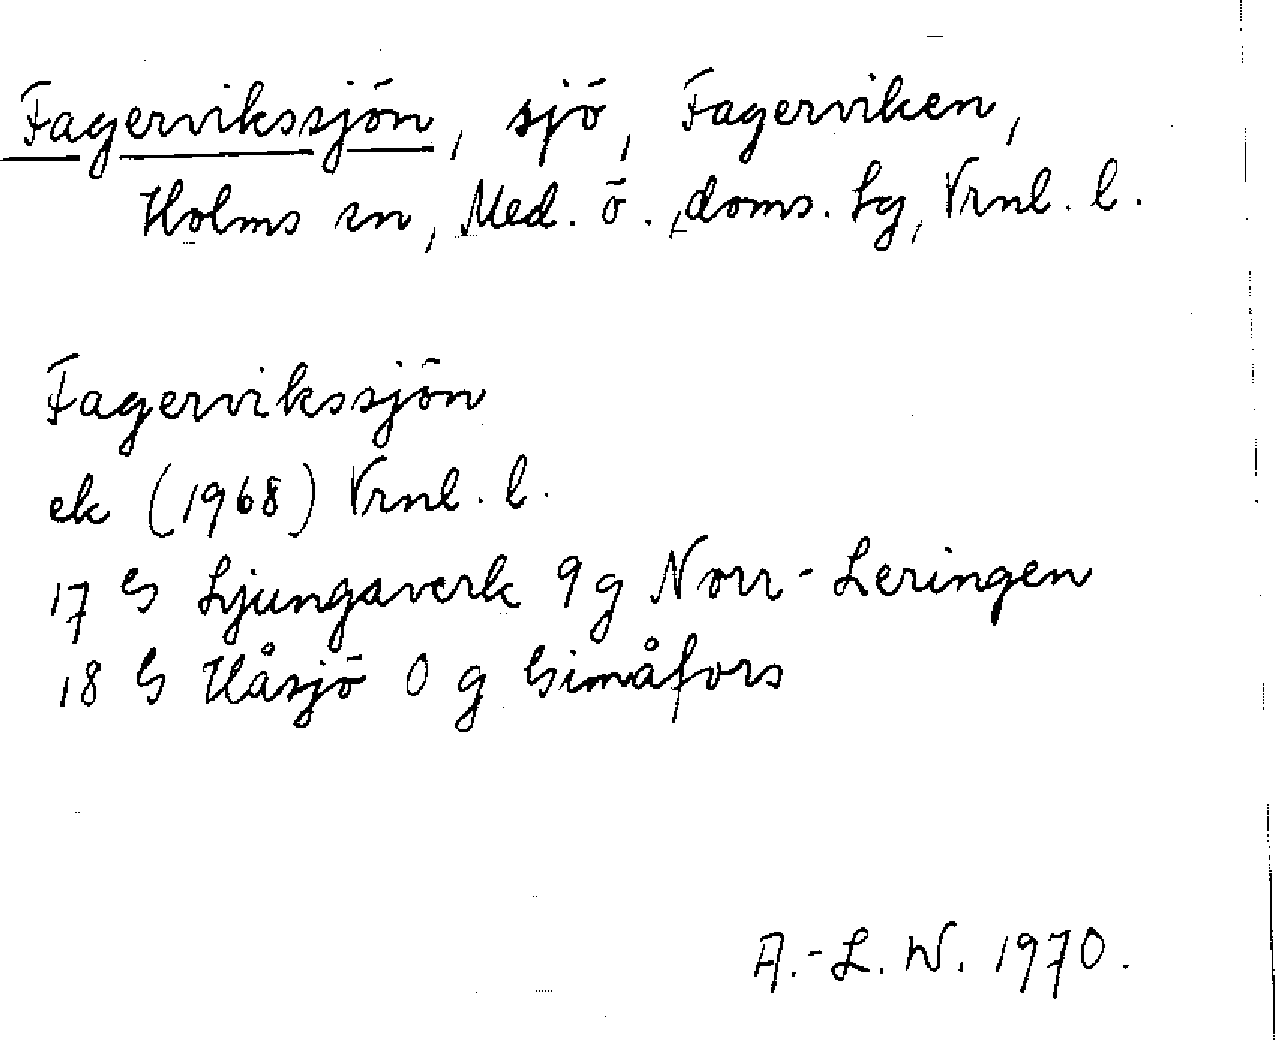 Fagervikssjön, sjö, Fagerviken,
Holms sn, Med. ö., doms. Lg, Vrnl. l.
Fagervikssjön
ek (1968) Vrnl. l.
17 G Ljungaverk 9 g Norr-Leringen
18 G Håsjö 0 g Gimåfors
A.-L. W. 1970.